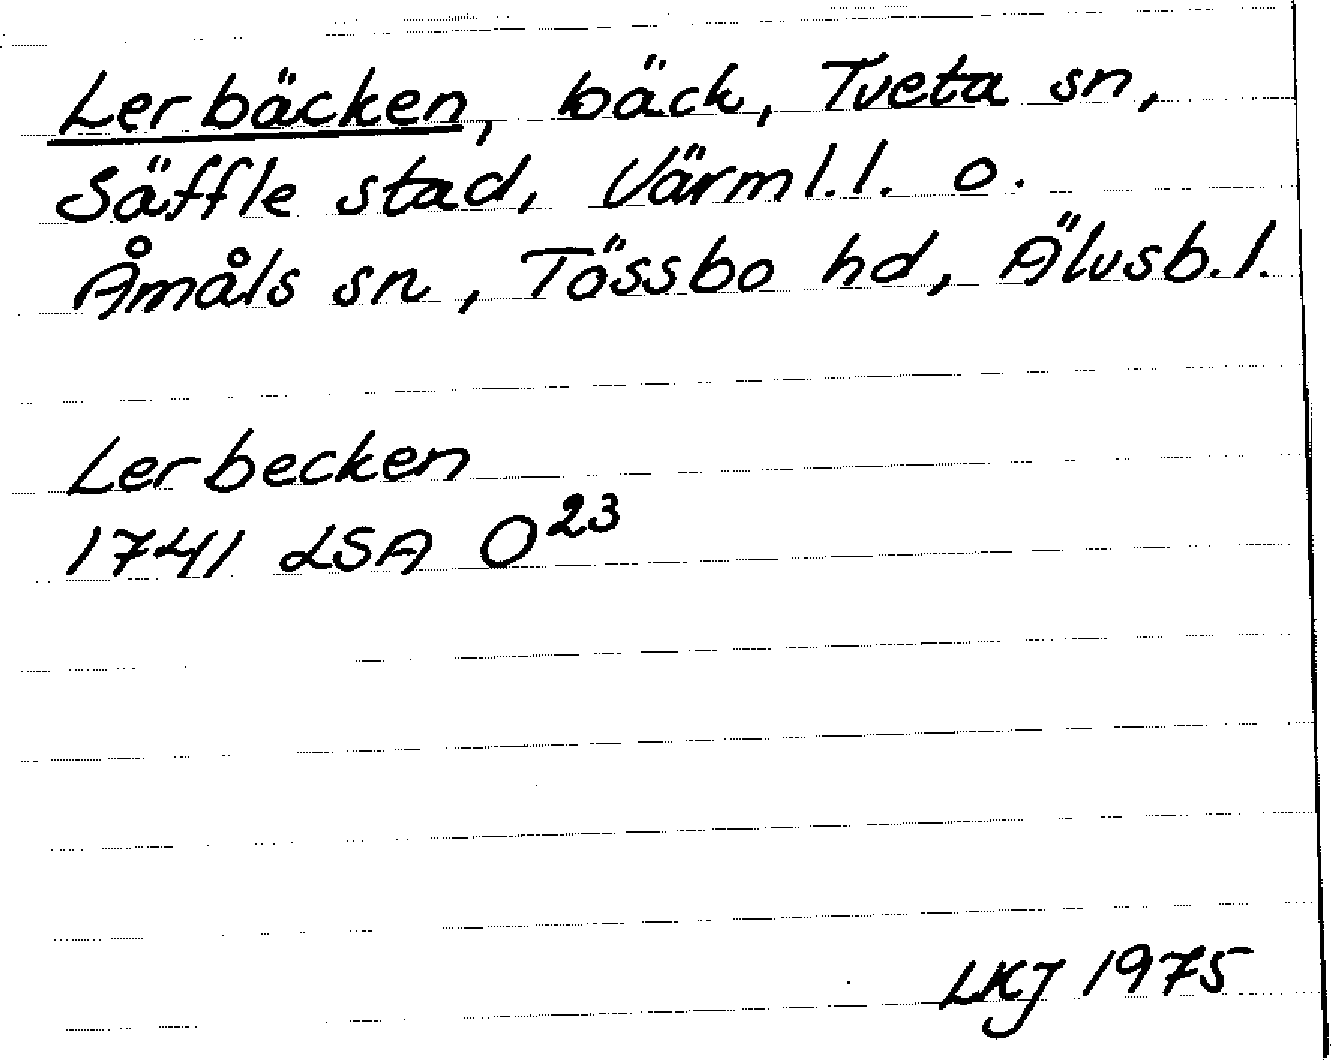 Lerbäcken, bäck, Tveta sn,
Säffle stad, Värml.l. o.
Åmåls sn, Tössbo hd, Älvsb.l.
Lerbecken
1741 LSA O²³
LKJ 1975